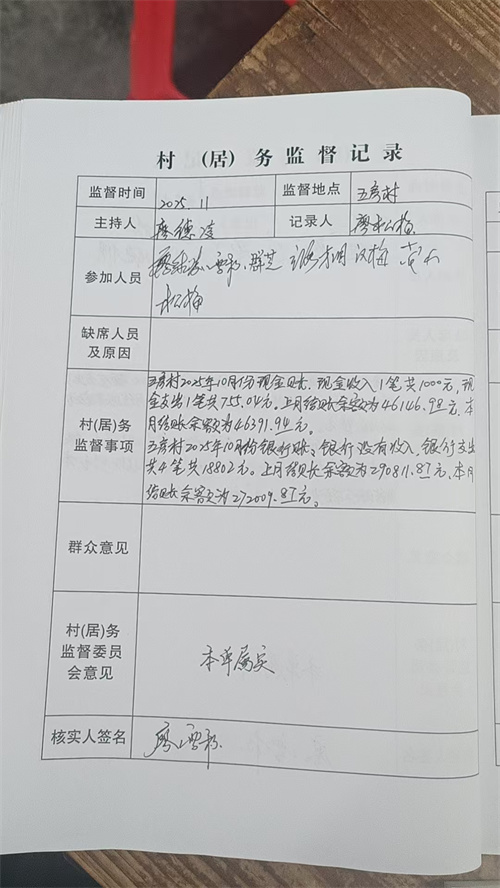 村 (居) 务 监 督 记 录
监督时间 2025.11 监督地点 五房村
主持人 廖德凌 记录人 廖松梅
参加人员
松梅
缺席人员
及原因
五房村2025年10月份现金账，现金收入1笔共1000元，现
金支出1笔共755.04元。上月结账余额为46146.98元，本
月结账余额为46391.94元。
村(居)务
监督事项
五房村2025年10月份银行账，银行没有收入，银行支出
共4笔共18802元。上月结账余额为290811.87元，本月
结账余额为272009.87元。
群众意见
村(居)务
监督委员
会意见
本单属实
核实人签名 廖